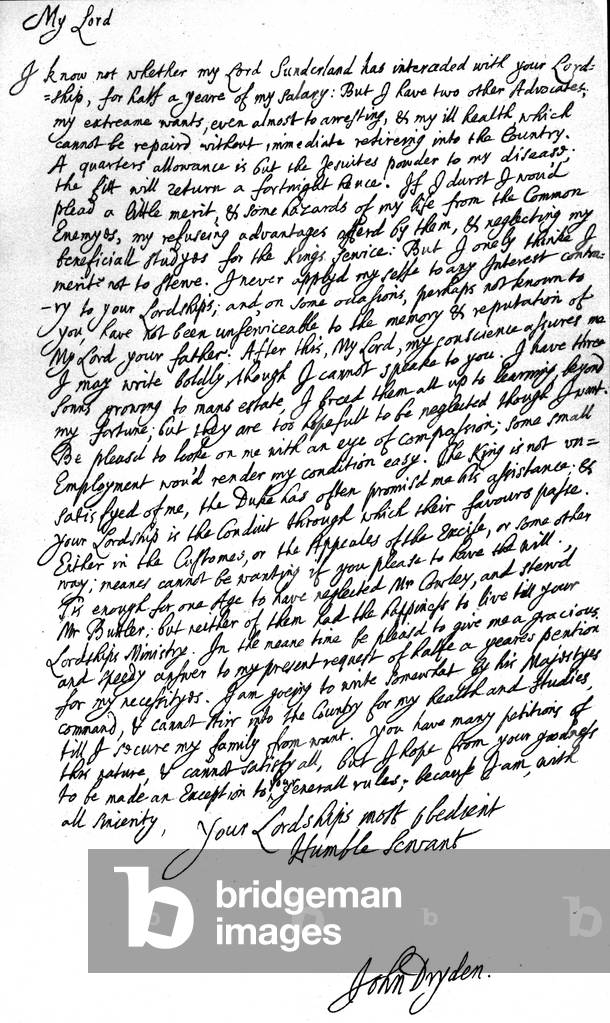 My Lord
I know not whether my Lord Sunderland has interceded with your Lord-
=ship, for half a yeare of my salary: But I have two other Advocates,
my extreame wants, even almost to arresting, & my ill health, which
cannot be repaird without immediate retireing into the Country.
A quarters allowance is but the Jesuites powder to my disease;
the fitt will return a fortnight hence. If I durst I wou'd
plead a little merit, & some hazards of my life from the Common
Enemyes, my refuseing advantages offerd by them, & neglecting my
beneficiall studyes for the King's service: But I onely thinke I
merit not to sterve. I never applyd my selfe to any Interest contra-
-ry to your Lordships; and, on some occasions, perhaps not known to
you, have not been unserviceable to the memory & reputation of
My Lord your father. After this, My Lord, my conscience assures me
I may write boldly, though I cannot speake to you. I have three
Sonns growing to mans estate, I breed them all up to learning, beyond
my fortune; but they are too hopefull to be neglected though I want.
Be pleasd to looke on me with an eye of compassion; some small
Employment wou'd render my condition easy. The King is not un=
satisfyed of me, the Duke has often promisd me his assistance; &
your Lordship is the Conduit through which their favours passe.
Either in the Customes, or the Appeales of the Excise, or some other
way; meanes cannot be wanting if you please to have the will.
Tis enough for one Age to have neglected Mr Cowley, and sterv'd
Mr Buttler; but neither of them had the happiness to live till your
Lordships Ministry. In the meane time be pleasd to give me a gracious
and speedy answer to my present request of halfe a yeares pention
for my necessityes. I am goeing to write somewhat by his Majestyes
command, & cannot stirr into the Country for my health and studies,
till I secure my family from want. You have many petitions of
this nature, & cannot satisfy all, but I hope from your goodness
to be made an Exception to your generall rules; because I am, with
all sincerity,
Your Lordships most obedient
Humble Servant
John Dryden.
b
bridgeman
images